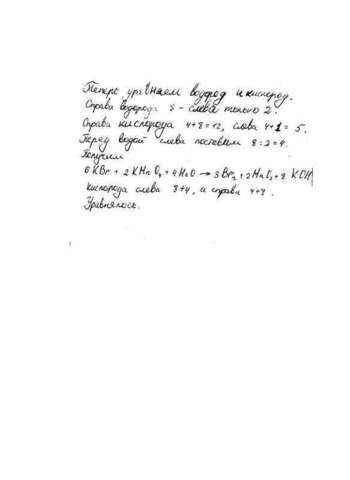 Теперь уравняем водород и кислород.
Справа водорода 8 - слева только 2.
Справа кислорода 4+8=12, слева 4+1= 5.
Перед водой слева поставим 8:2=4.
Получим
6 KBr + 2 KMnO₄ + 4H₂O → 3Br₂ + 2MnO₂ + 8 KOH
Кислорода слева 8+4, а справа 4+8.
Уравнялось.